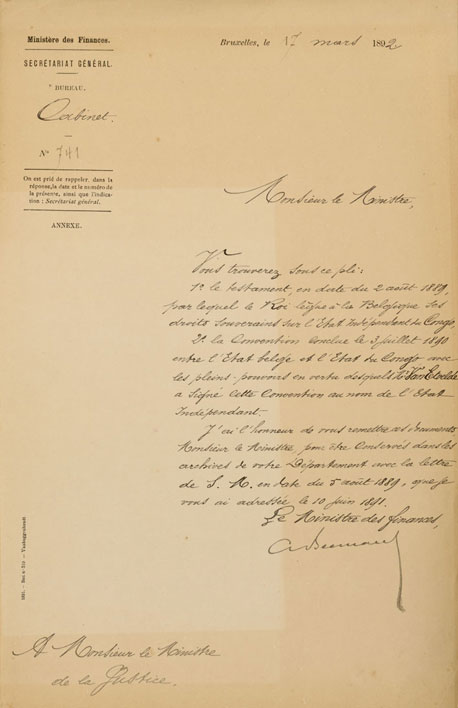 Ministère des Finances.
SECRÉTARIAT GÉNÉRAL.
e BUREAU.
Cabinet.
N° 741
On est prié de rappeler, dans la
réponse, la date et le numéro de
la présente, ainsi que l'indica-
tion : Secrétariat général.
ANNEXE.
Bruxelles, le 17 mars 1892
Monsieur le Ministre,
Vous trouverez sous ce pli :
1° le testament, en date du 2 août 1889,
par lequel le Roi lègue à la Belgique ses
droits souverains sur l'Etat Indépendant du Congo,
2° la Convention conclue le 3 juillet 1890
entre l'Etat belge et l'Etat du Congo avec
les pleins-pouvoirs en vertu desquels Mr Van Eetvelde
a signé cette Convention au nom de l'Etat
Indépendant.
J'ai l'honneur de vous remettre ces documents
Monsieur le Ministre, pour être conservés dans les
archives de votre Département avec la lettre
de S. M. en date du 5 août 1889, que je
vous ai adressée le 10 juin 1891.
Le Ministre des finances,
A Beernaert
A Monsieur le Ministre
de la Justice.